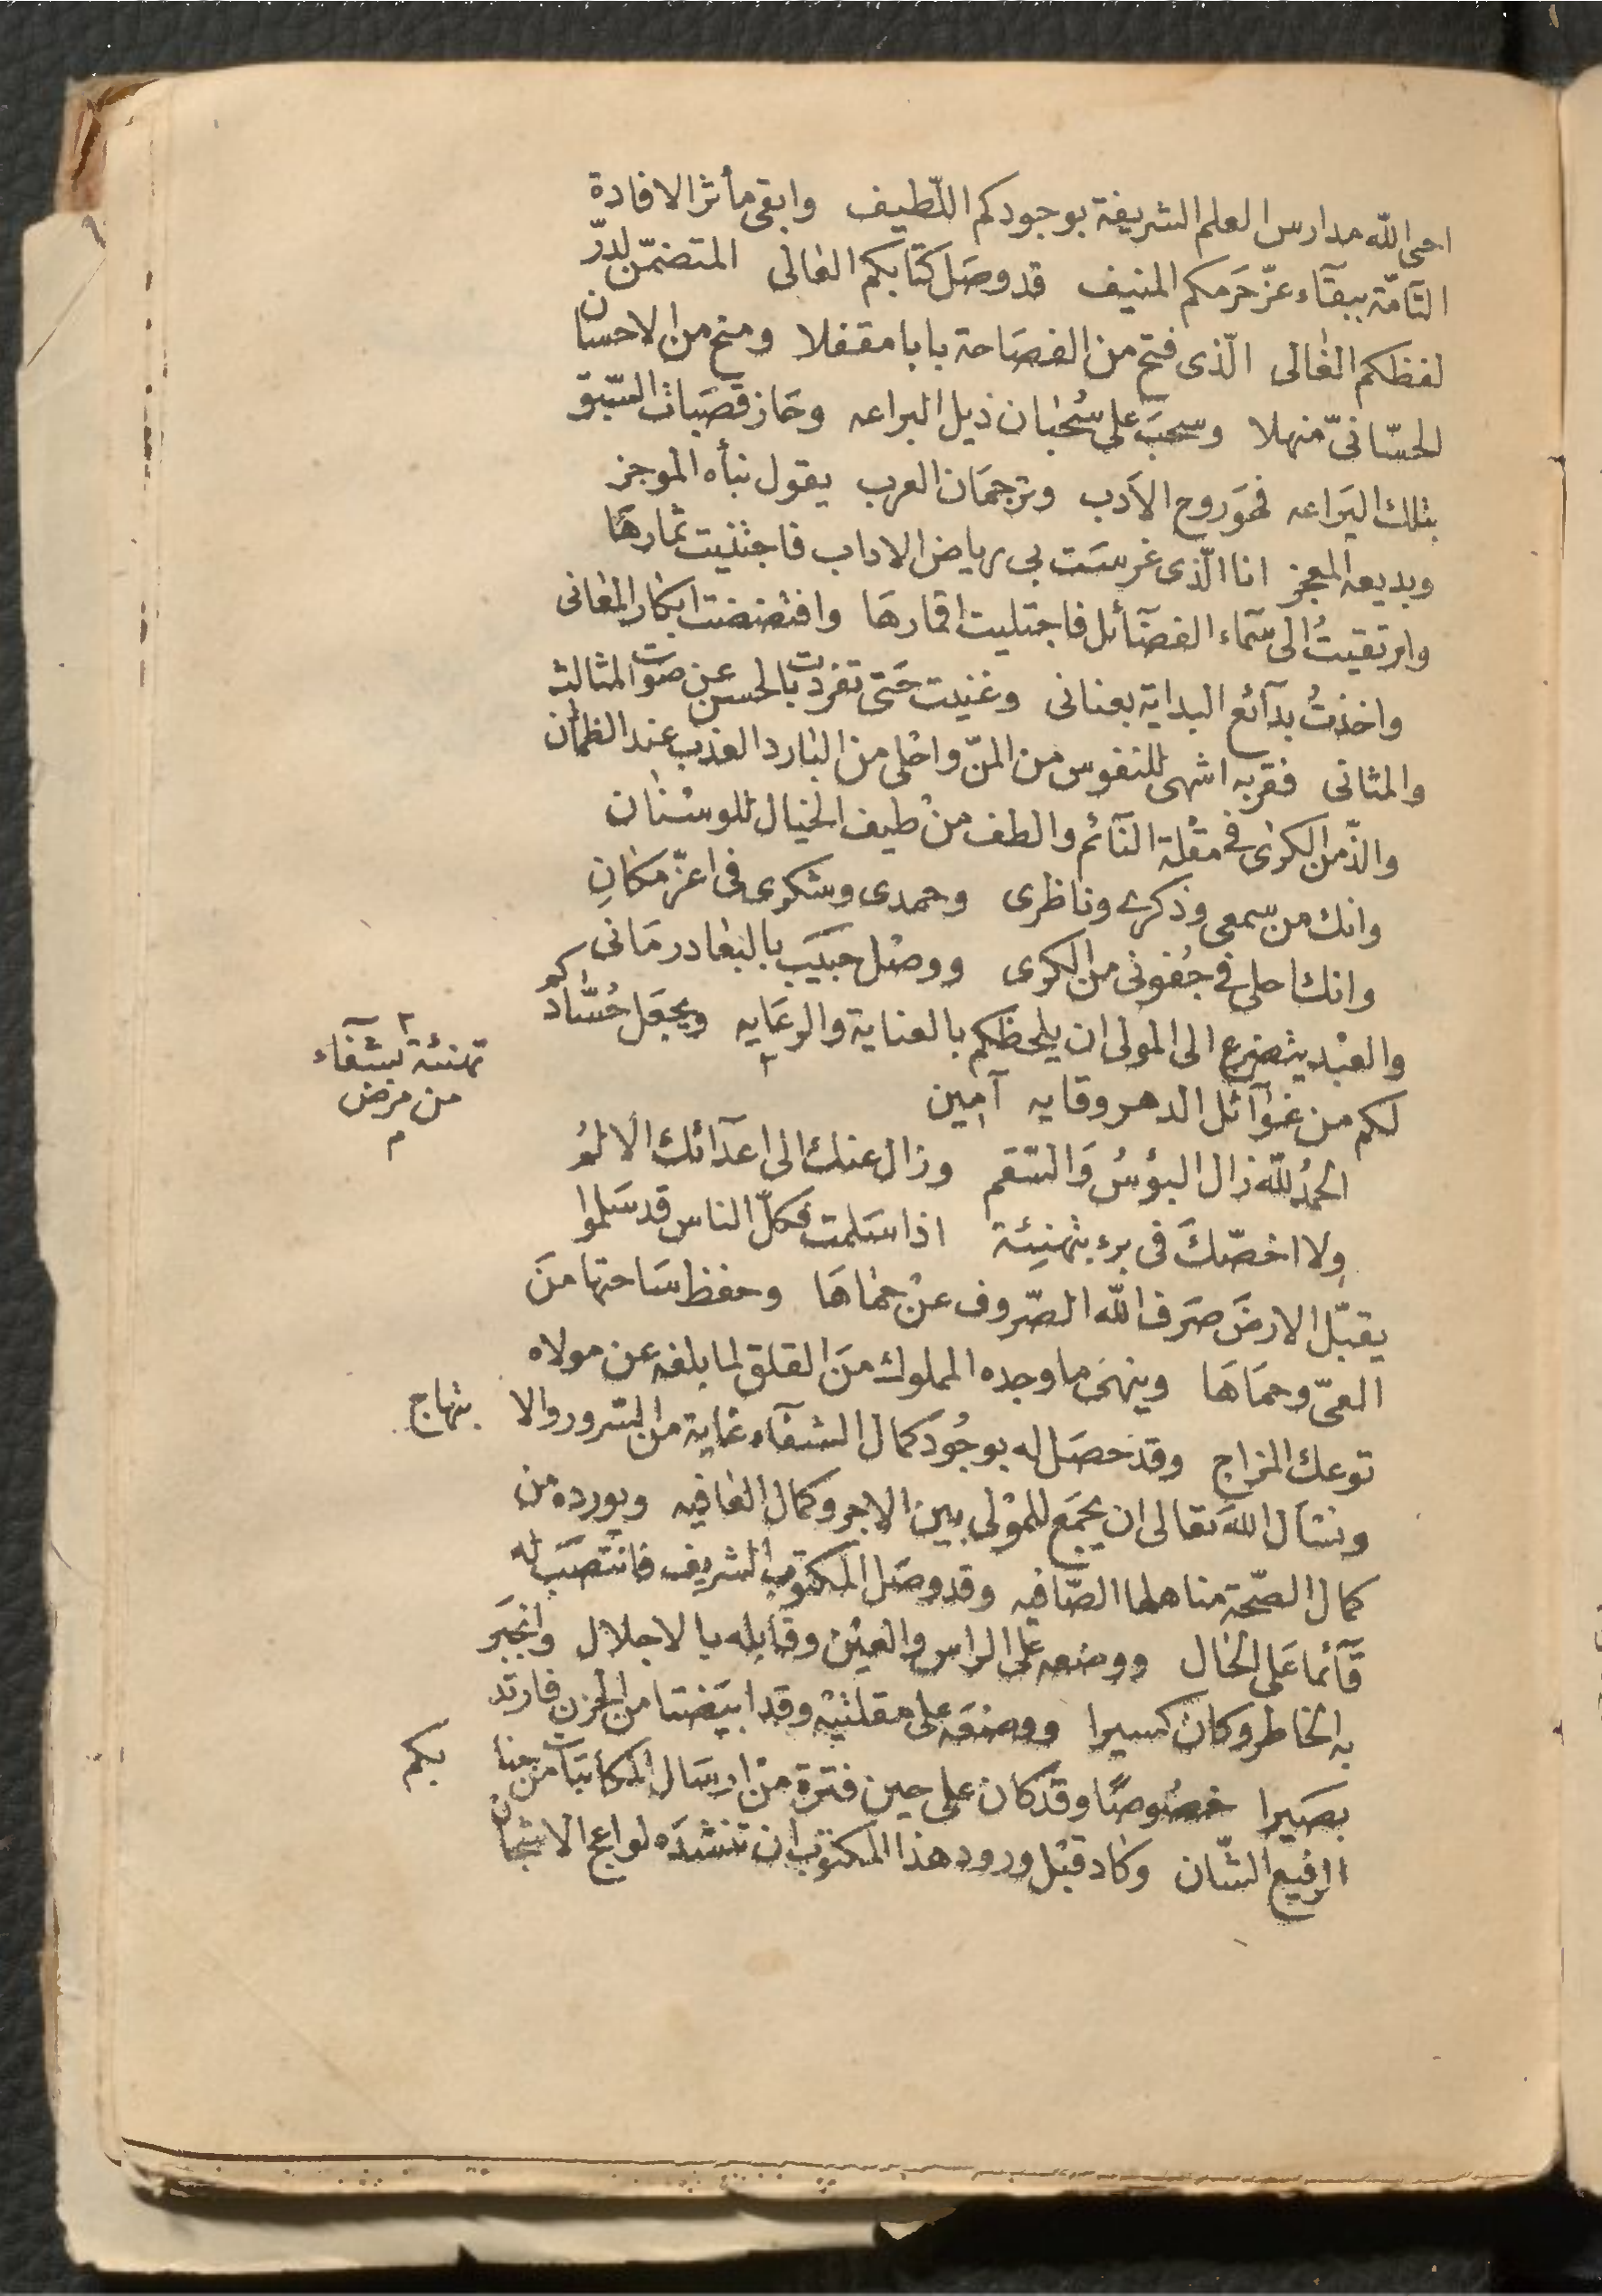 احى الله مدارس العلم الشريفة بوجودكم اللّطيف وابقى مأثر الافادة
التآمّة ببقآء عزّ حَرمكم المنيف قد وصَل كتابكم العٰالى المتضمّن لدرّ
لفظكم الغٰالى الّذى فتح من الفصَاحة بابا مقفلا ومنح من الاحسان
الحسّانىّ منهلا وسحبَ على سُحبٰان ذيل البراعه وحَاز قصَبات السّبق
بتلك اليَراعه فهَو روح الاَدب وترجمَان العرب يقول نبأه الموجز
وبديعه المعجز انا الّذى غرسَت بى رياض الاداب فاجتنيت ثمارهَا
وارتقيتُ الى سَمآء الفضَآئل فاجتليت اقمارهَا وافتضضت ابكار المعٰانى
واخذتُ بدآئع البداية بعنانى وغنيت حَتى تفردت بالحسن عن صَوت المثالث
والمثانى فقربه اشهى للنفوس من المنّ واحْلى من البٰارد العذب عند الظمأن
والذّ من الكرٰى فى مقْلة النآئم والطف من طيف الخيال للوسْنٰان
وانك من سمعى وذكرى وناظرى وحمدى وشكرى فى اعزّ مكانِ
وانك احلى فى جُفونى من الكرى ووصْل حبيَب بالبعٰاد رمَانى
والعبْد يتضرع الى المولى ان يلحظكم بالعناية والرعَايه ويجعَل حُسّٰادكم
لكم من غوٰآئل الدهر وقايه آمين
تهنئة بشفٰآء
من مرض
الحمدُ للّه زال البؤسُ وَالسّقم وزال عنك الى اعدَآئك الالمُ
ولا اخصّكَ فى برء بتهنِئة اذا سَلمت فكلّ الناس قد سَلموا
يقبّل الارضَ صَرف اللّه الصّروف عنْ حمٰاهَا وحفظ سَاحتها منَ
العىّ وحمَاهَا وينهى ما وجده المملوك منَ القلق لما بلغه عن مولاه
توعك المزاج وقدْ حصَل له بوجُود كمال الشفآء غاية من السّرور والابتهاج
ونسَأل اللهَ تعالى ان يجمَع للمْولى بين الاجر وكمال العٰافيه ويورده من
كمال الصّحة مناهلها الصّافيه وقد وصَل المكتوب الشريف فانتصَبَ له
قآئما عَلى الحٰال ووضعه على الراس والعيْن وقابله بالاجلال وانجبَر
به الخاطر وكان كسيرا ووضعَه على مقلتيْه وقد ابيَضتا من الحزن فارتد
بصَيرا خصُوصًا وقدْ كان على حين فترة منْ ارسَال المكاتبَات من جنابكم
الرفيع الشّان وكاد قبْل ورود هذا المكتوب ان تنشدَه لواعج الاشجان